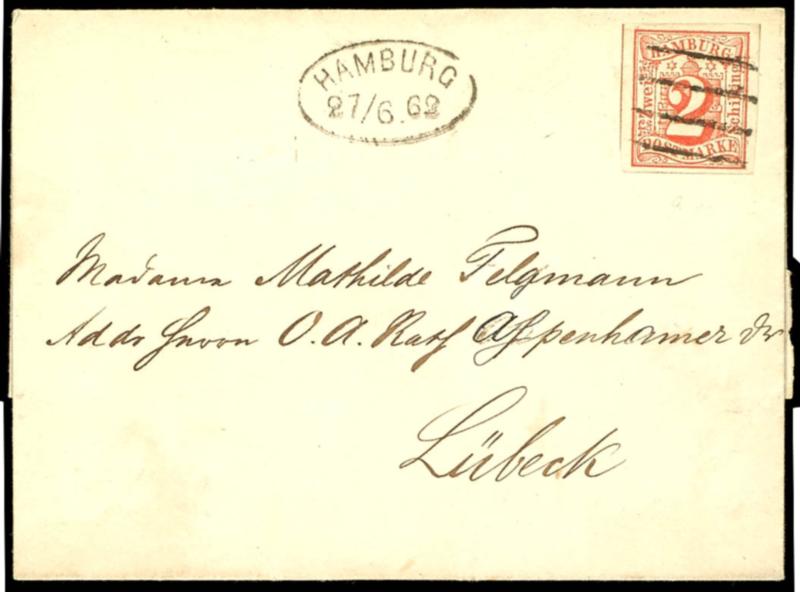 HAMBURG
27/6.62
HAMBURG
Zwei
2
Schilling
POSTMARKE
Madama Mathilde Felgmann
Addr Herrn O. A. Rath Appenhamer Dr
Lübeck